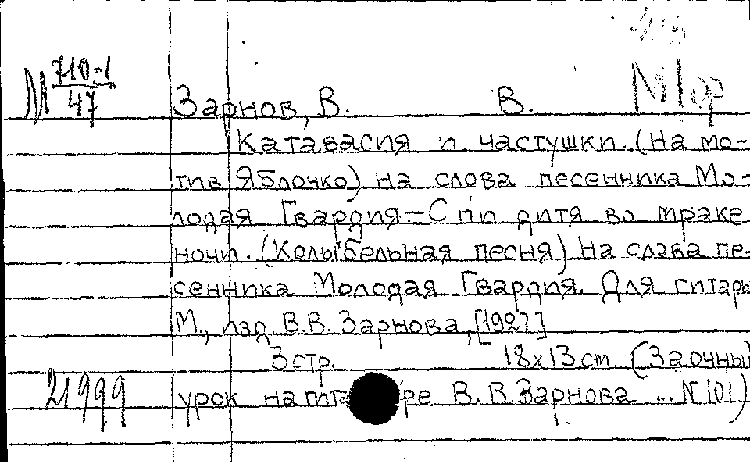 М 710-1/47
Зарнов, В. В.
Катавасия и частушки. (На мо-
тив Яблочко) на слова песенника Мо-
лодая Гвардия=Спи дитя во мраке
ночи. (Колыбельная песня) на слова пе-
сенника Молодая Гвардия. Для гитары
М., изд. В.В. Зарнова, [1927]
3 стр. 18x13 cm (Заочный
21999 урок на гита ре В. В Зарнова ... N 101)